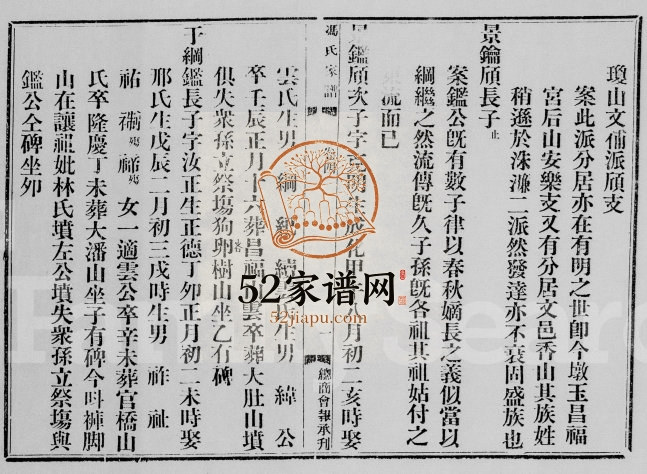 瓊山文僃派頎支
案此派分居亦在有明之世卽今墩玉昌福
宮后山安樂支又有分居文邑香山其族姓
稍遜於洙濂二派然發達亦不衰固盛族也
景鑰頎長子止
案鑑公旣有數子律以春秋嫡長之義似當以
綱繼之然流傳旣久子孫旣各祖其祖姑付之
流而已
景鑑頎次子字 月初二亥時娶
雲氏生男 綱 續 氏生男 緯 公
卒壬辰正月十六葬昌福山雲卒葬大肚山墳
俱失衆孫立祭塲狗卵樹山坐乙有碑
馮氏家譜
總商會報承刋
于綱鑑長子字汝正生正德丁夘正月初二未時娶
邢氏生戊辰二月初三戌時生男 祚 祉
祐 禂殀 祥殀 女一適雲公卒辛未葬官橋山
氏卒隆慶丁未葬大潘山坐子有碑今呌褲脚
山在讓祖妣林氏墳左公墳失衆孫立祭塲與
鑑公仝碑坐夘
52家谱网
52jiapu.com